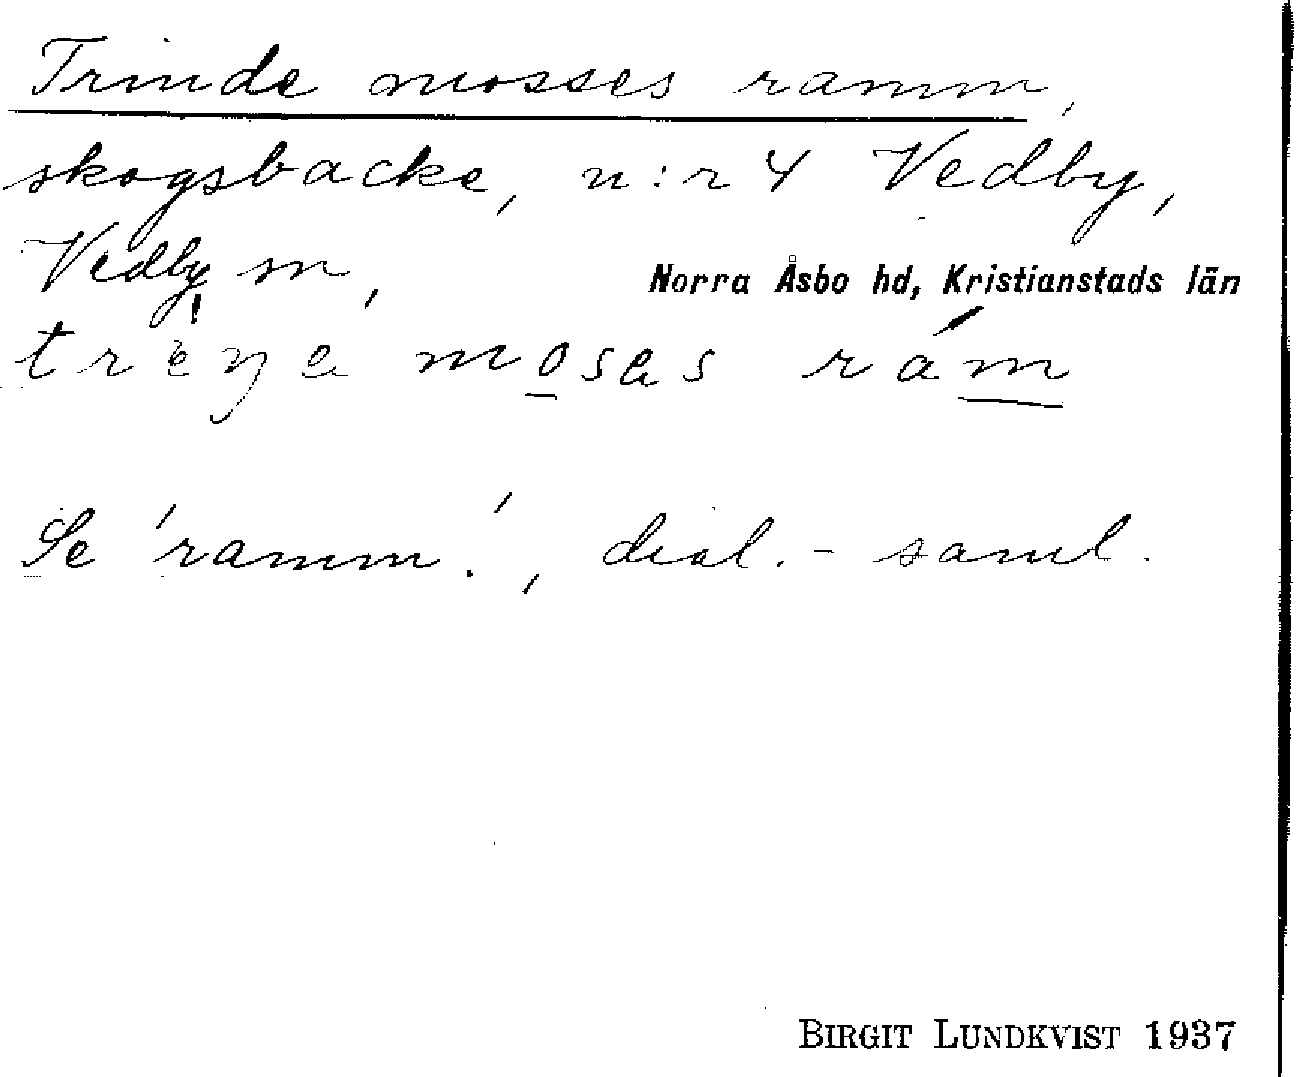 Trinde mosses ramm,
skogsbacke, n:r 4 Vedby,
Vedby sn, Norra Åsbo hd, Kristianstads län
trèŋe moses rám
Se 'ramm.', dial.-saml.
BIRGIT LUNDKVIST 1937